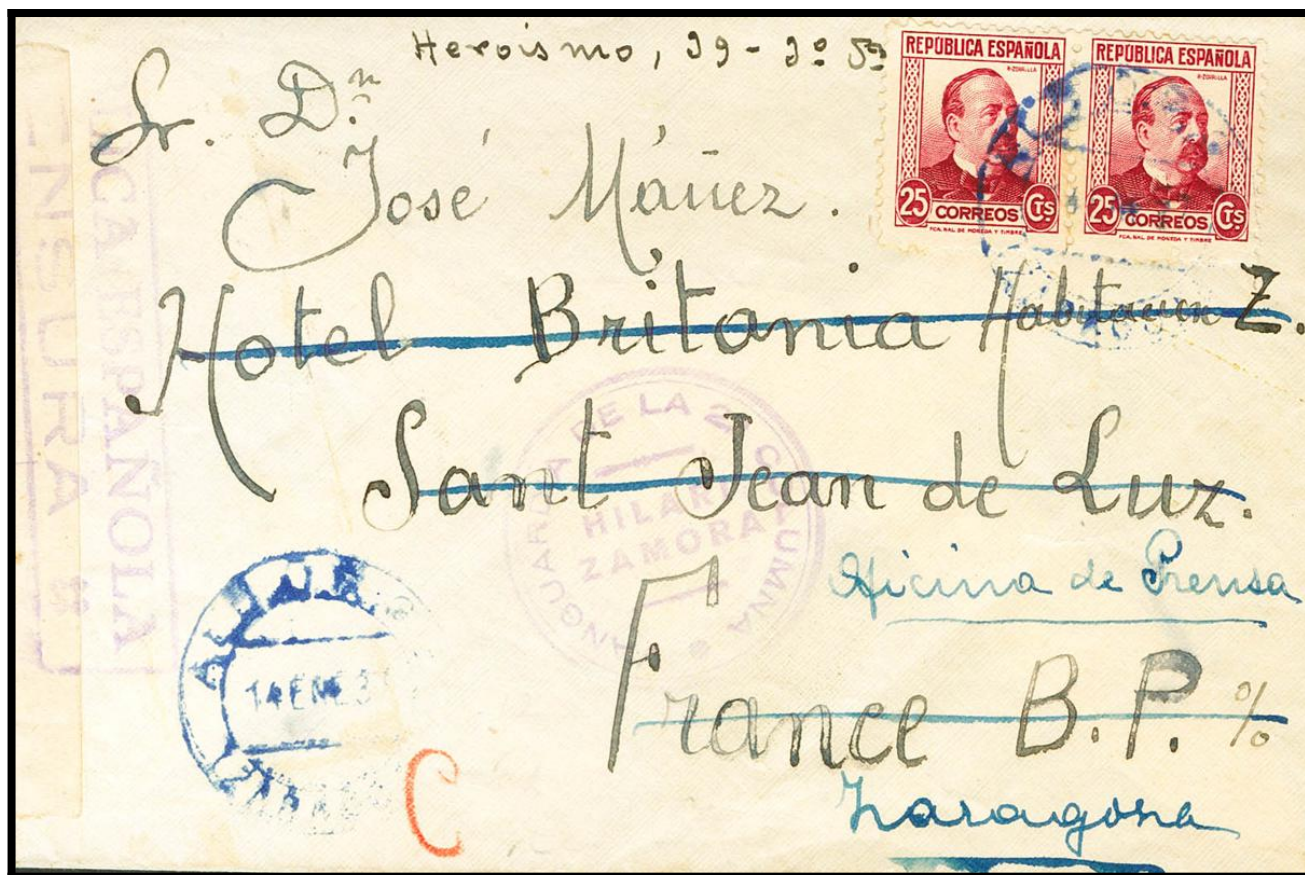 Heroismo, 39 - 3º
REPÚBLICA ESPAÑOLA
25 CORREOS CTS
FCA. NAL DE MONEDA Y TIMBRE
REPÚBLICA ESPAÑOLA
25 CORREOS CTS
FCA. NAL DE MONEDA Y TIMBRE
Sr. Dn
José Máñez.
Hotel Britania Habitación Z.
Sant Jean de Luz.
Oficina de Prensa
France B.P. %
Zaragoza
C
DE LA 2ª COLUMNA
HILARIO
ZAMORA
14 ENE 3
ESPAÑOLA
CENSURA